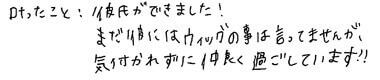 叶ったこと：彼氏ができました！
まだ彼にはウィッグの事は言ってませんが、
気付かれずに仲良く過ごしています!!